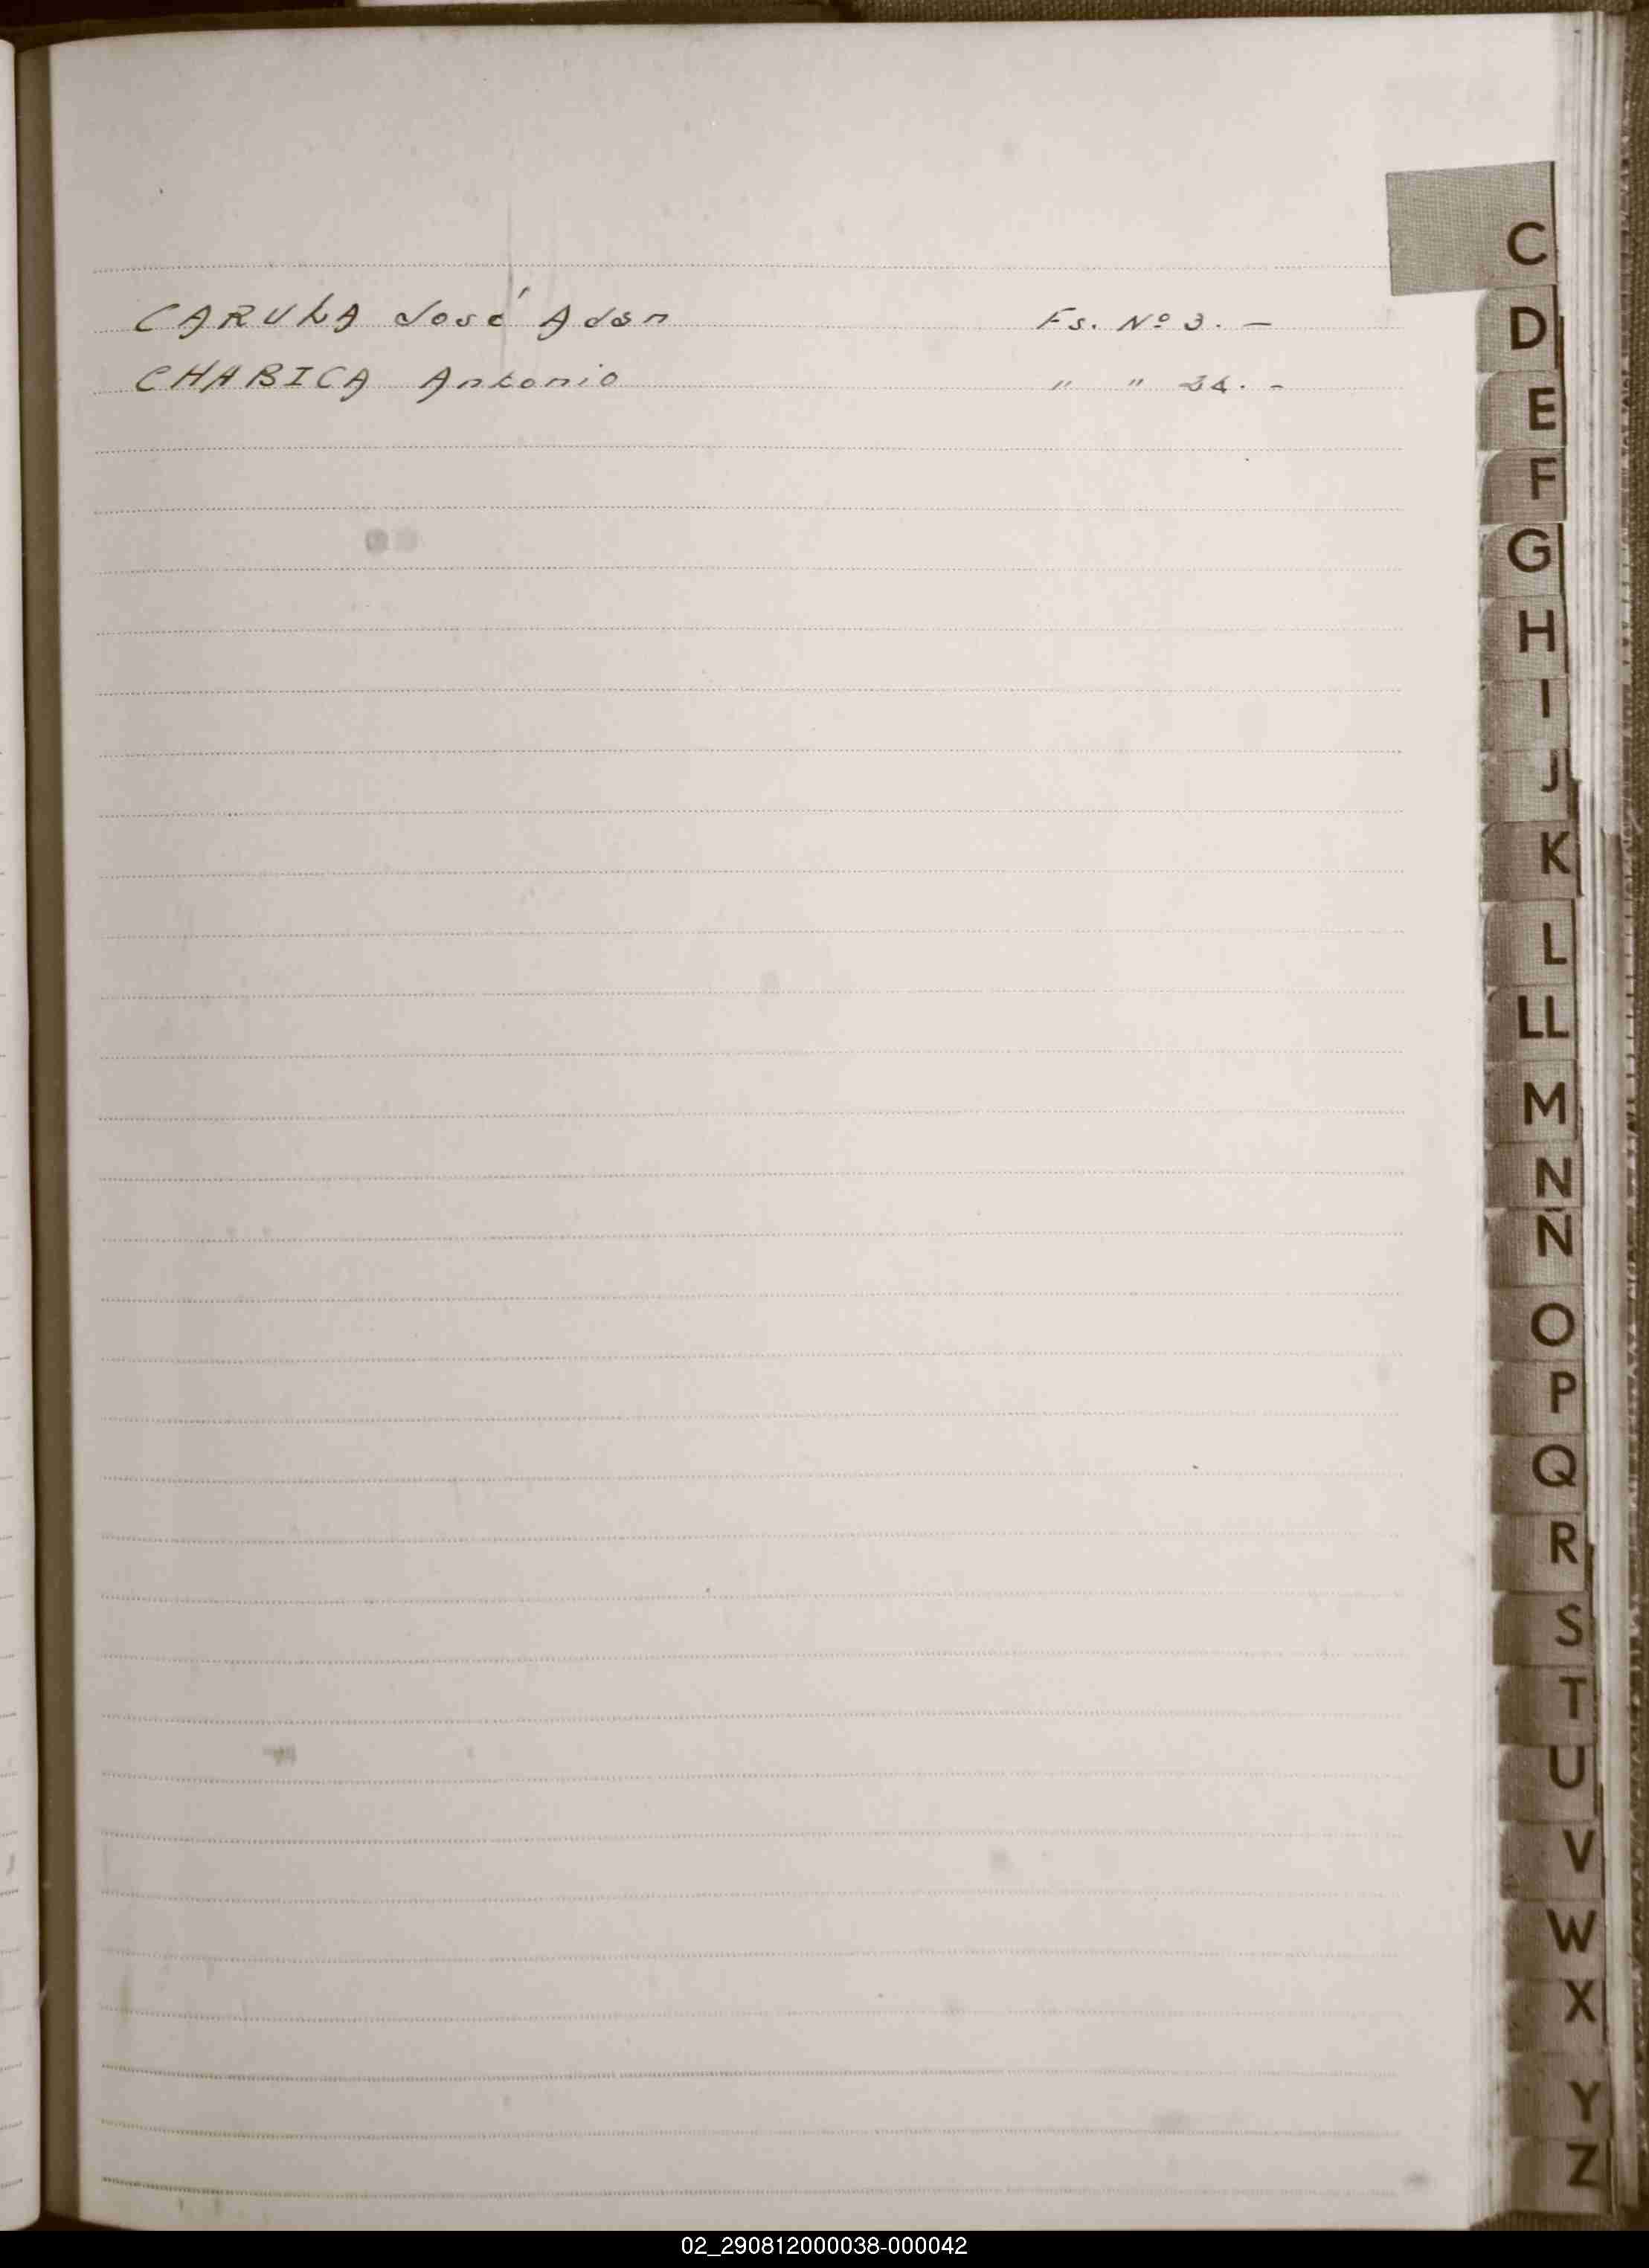 CARULA José Adan Fs. Nº 3. —
CHABICA Antonio " " 34. -
C
D
E
F
G
H
I
J
K
L
LL
M
N
N
O
P
Q
R
S
T
U
V
W
X
Y
Z
02_290812000038-000042